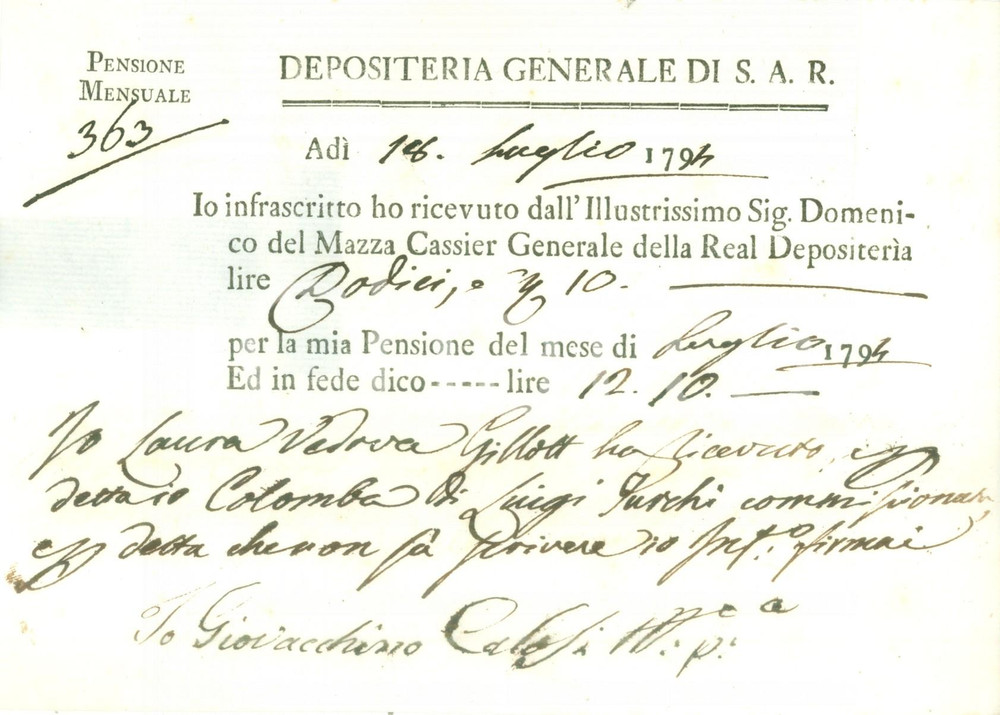 PENSIONE
MENSUALE
363
DEPOSITERIA GENERALE DI S. A. R.
Adì 18. Luglio 1794
Io infrascritto ho ricevuto dall'Illustrissimo Sig. Domeni-
co del Mazza Cassier Generale della Real Depositerìa
lire Dodici, e 10. 
per la mia Pensione del mese di Luglio 1794
Ed in fede dico ----- lire 12. 10.
Io Laura Vedova Gillott ho ricevuto, e p
detta io Colomba di Luigi Turchi commissionar
e p detta che non sà scrivere io Inf.o firmai
Io Giovacchino Calosi M: p: